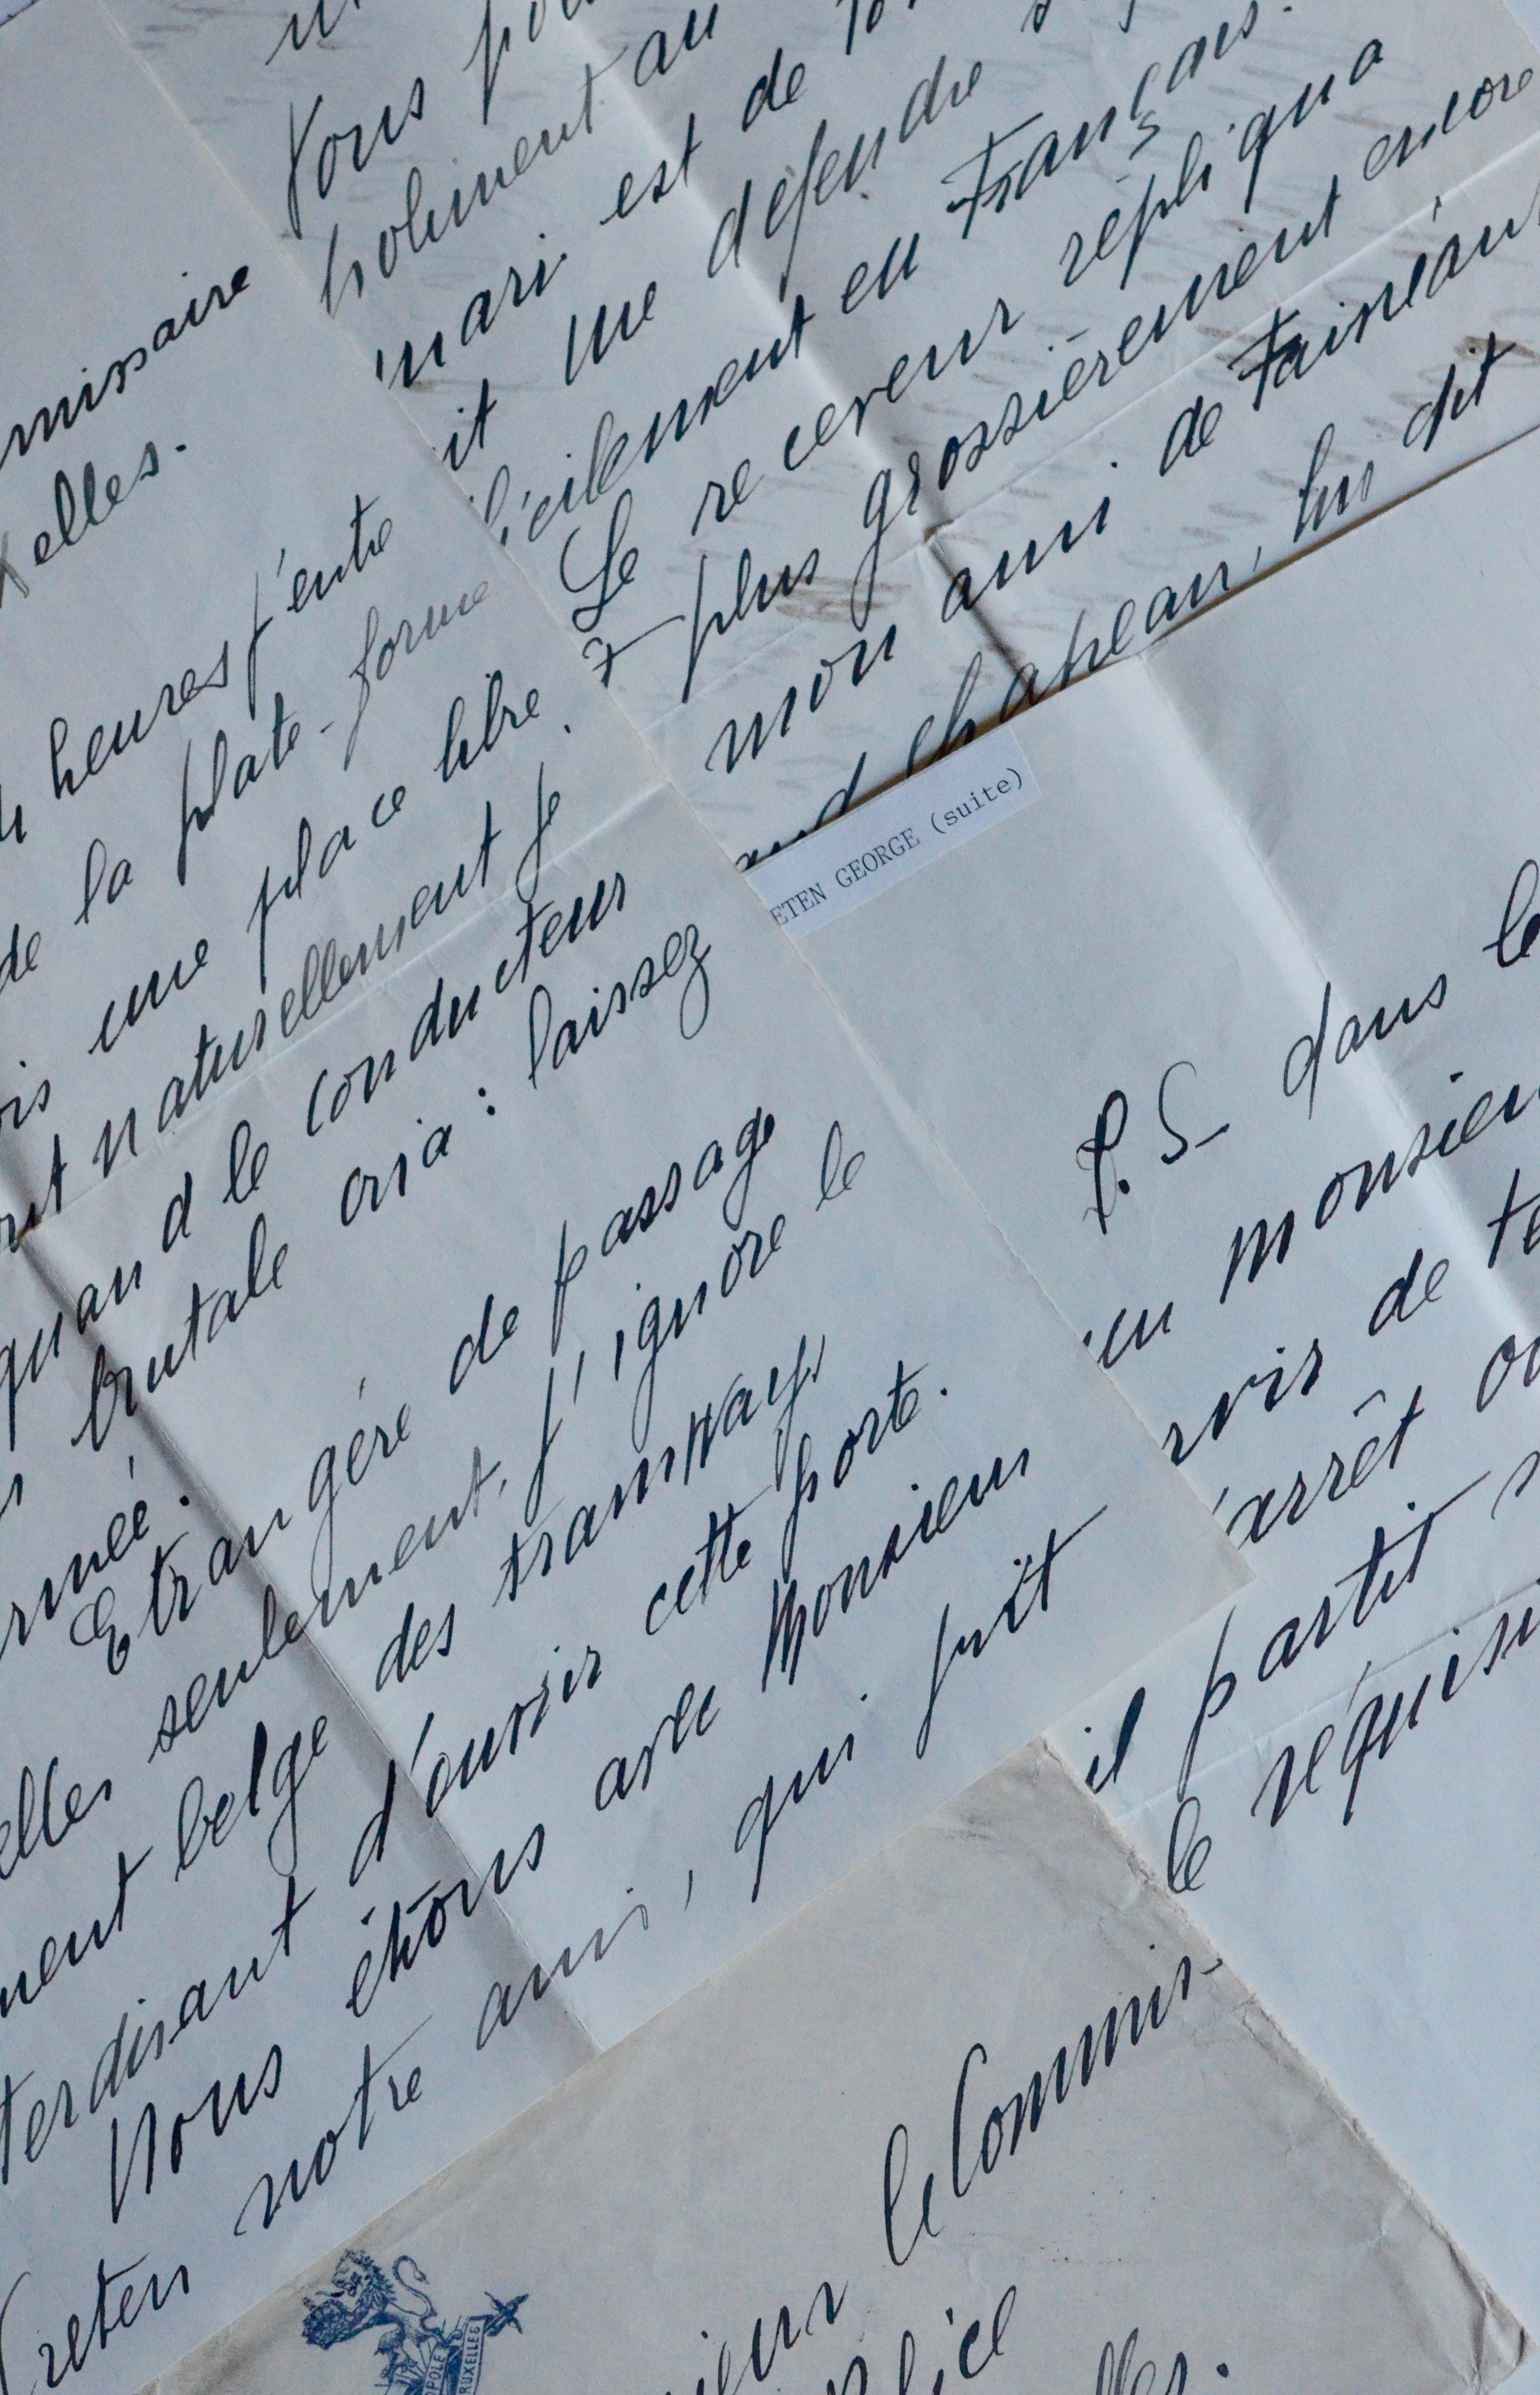 missaire
elles.
heures j'entre
de la plate-forme
une place libre.
naturellement je
quand le conducteur
brutale cria : laissez
rmée.
Etrangère de passage
elles seulement, j'ignore le
ment belge des tramways
terdisant d'ouvrir cette porte.
Nous étions avec Monsieur
reten notre ami, qui prit
Vous
poliment au
mari est de
it me défendre
cilement en Français.
Le receveur répliqua
plus grossièrement encore
mon ami de Fainéant
and chapeau, lui dit
ETEN GEORGE (suite)
P.S. dans le
un monsieur
rvis de te
arrêt ou
il partit
le réquisi
ieur le Commis-
lice
lles.
OPOLE
RUXELLES